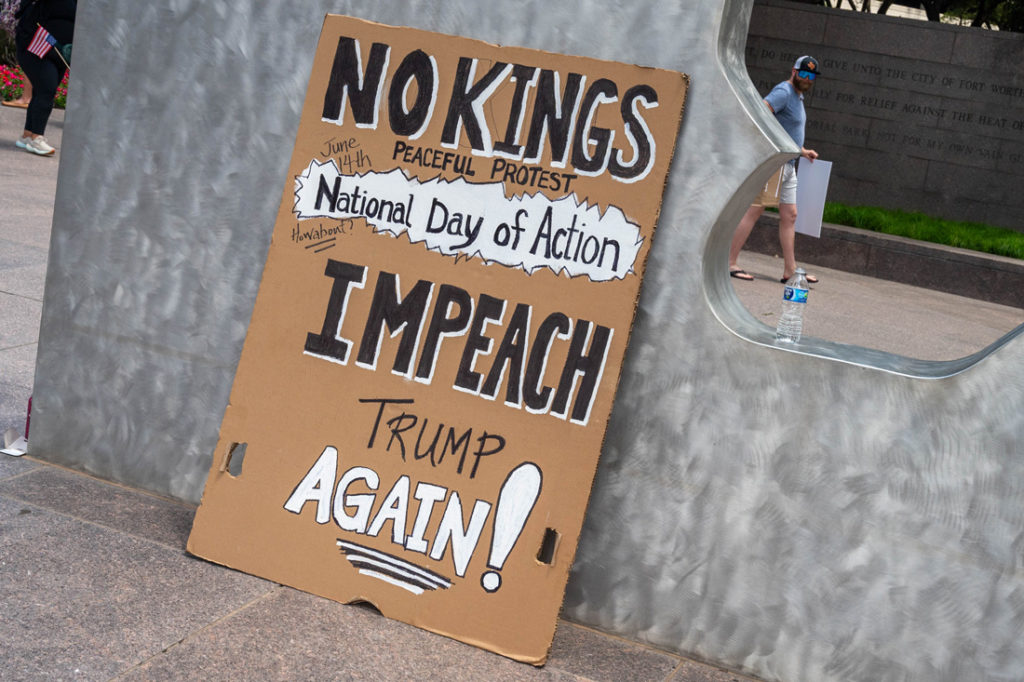 NO KINGS
June
14th
PEACEFUL PROTEST
National Day of Action
How about?
IMPEACH
TRUMP
AGAIN!
DO GIVE UNTO THE CITY OF FORT WORTH
FOR RELIEF AGAINST THE HEAT OF
PARK NOT FOR MY OWN